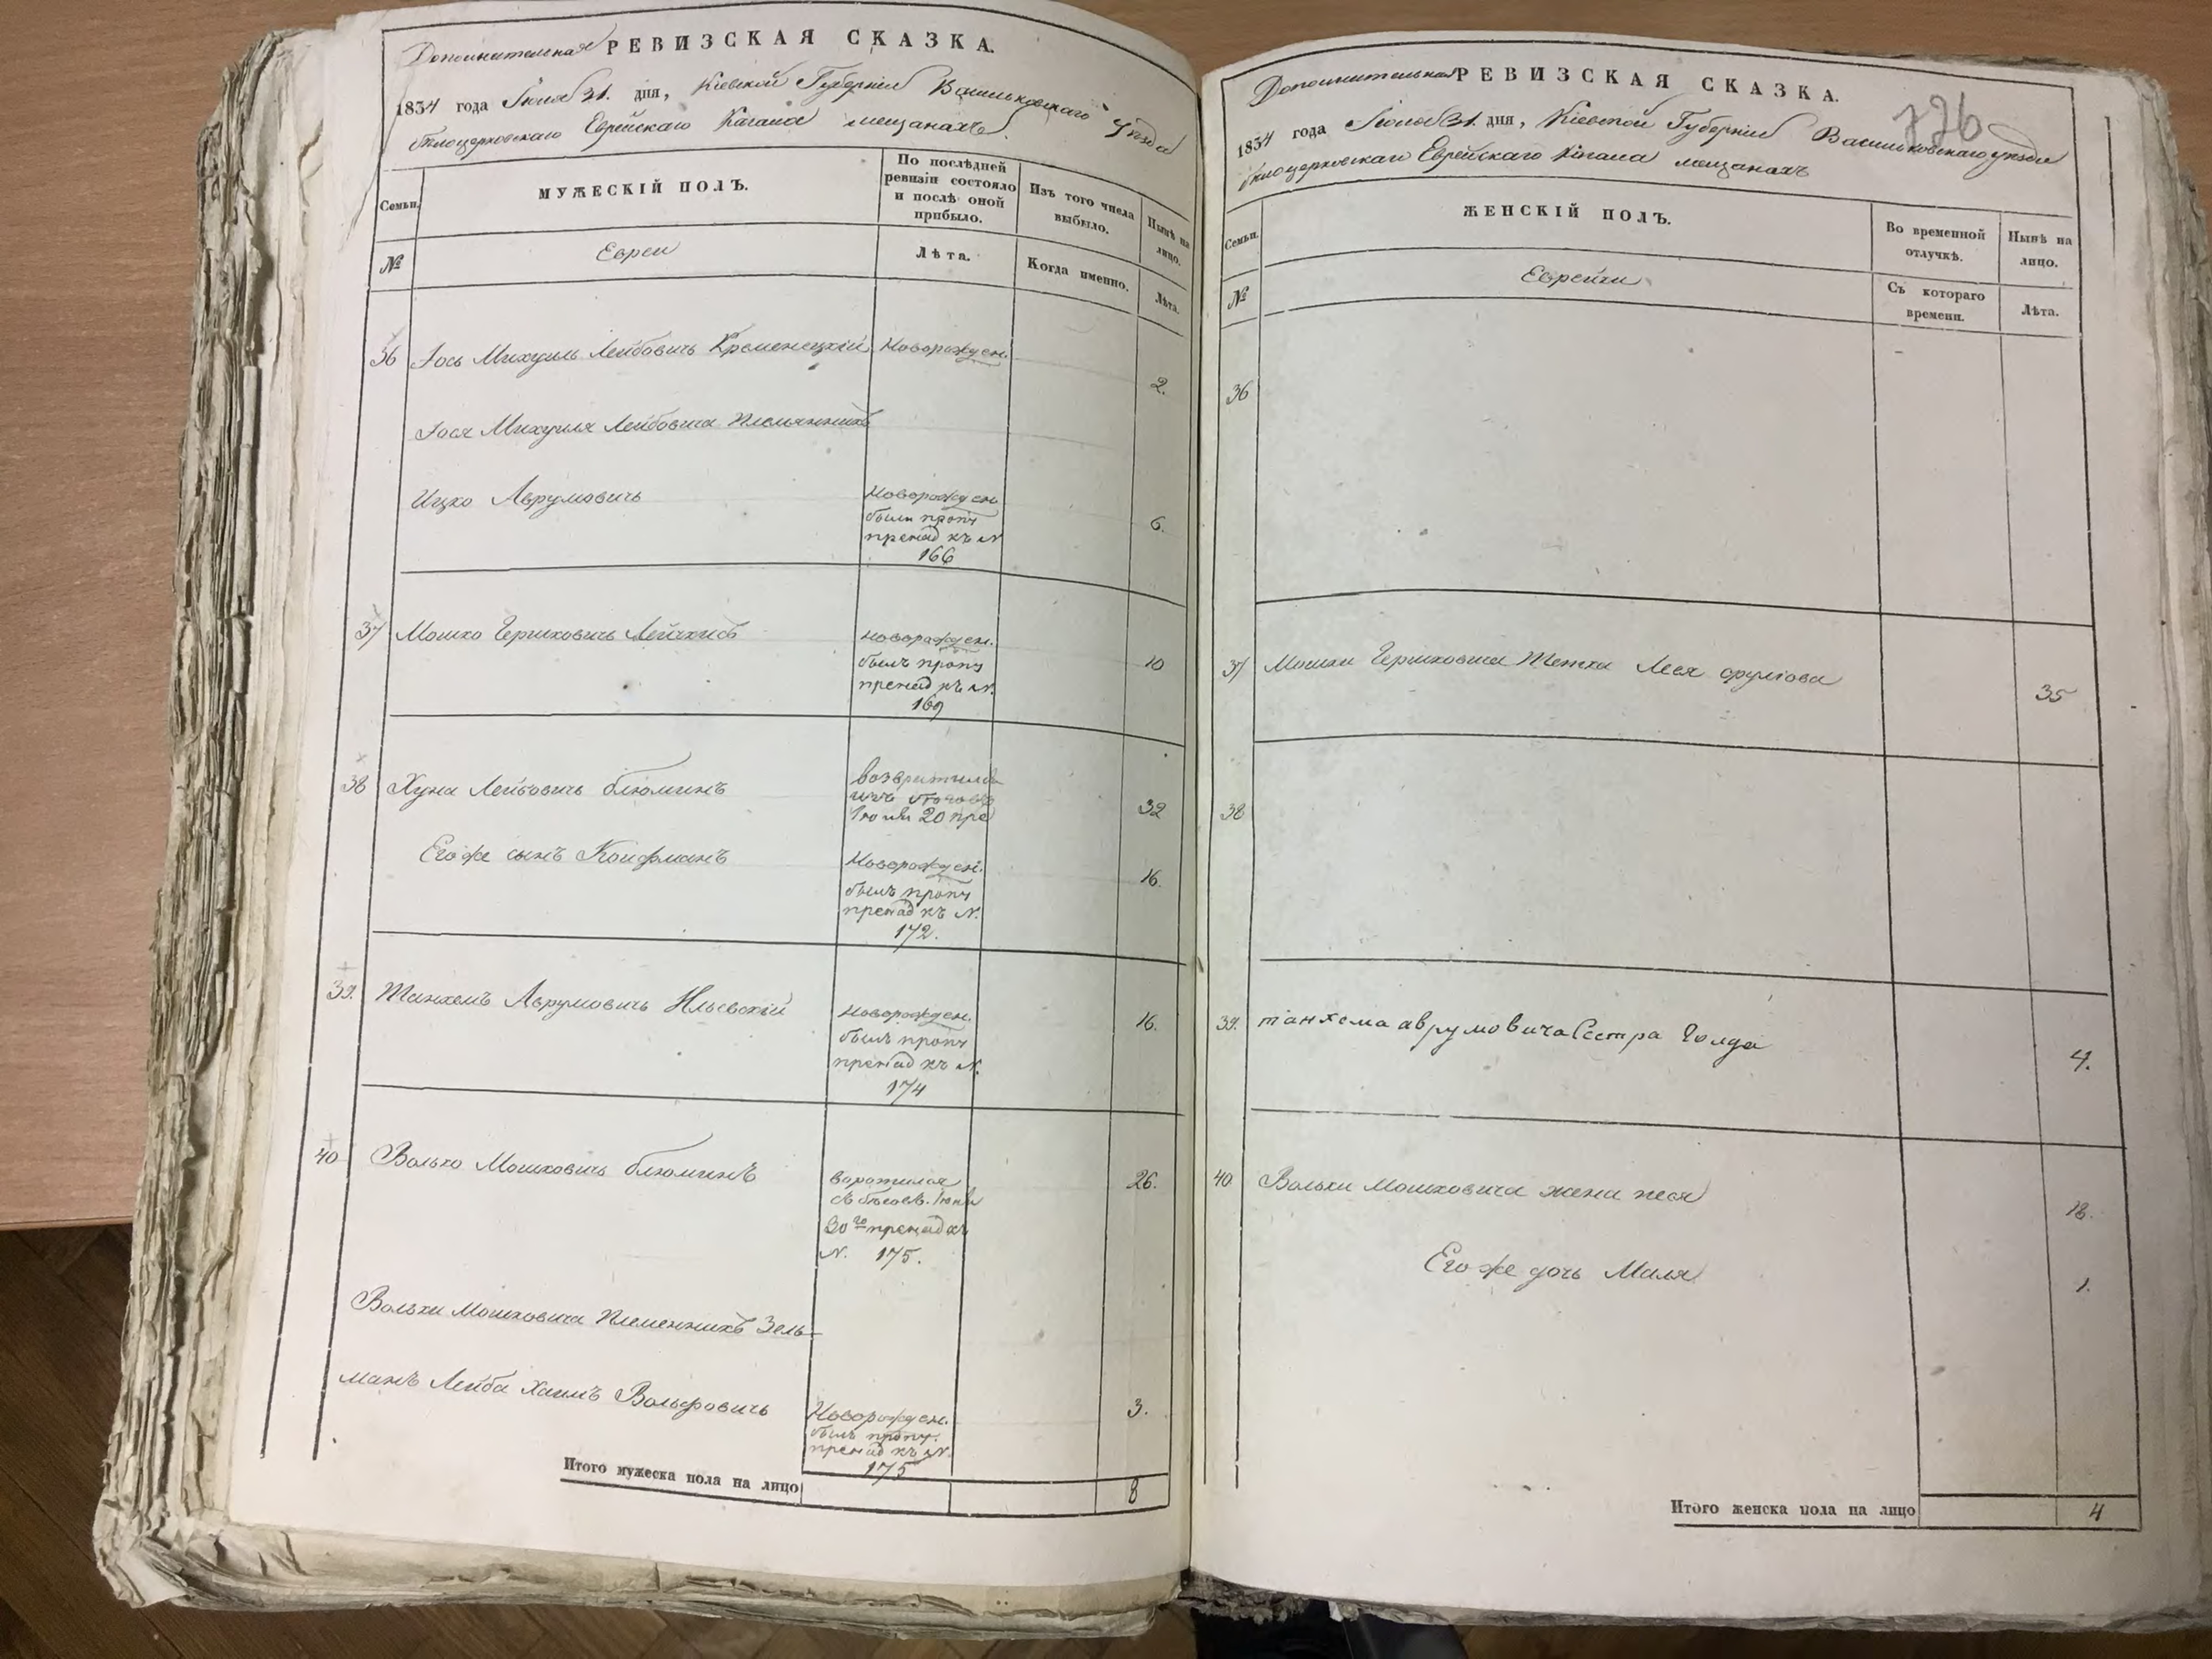 Дополнительная РЕВИЗСКАЯ СКАЗКА.
1834 года Июля 31. дня, Кіевской Губерніи Васильковскаго Уѣзда
бѣлоцерковскаго Еврейскаго Кагала мещанахъ.
Семьи.
МУЖЕСКІЙ ПОЛЪ.
По послѣдней
ревизіи состояло
и послѣ оной
прибыло.
Изъ того числа
выбыло.
Нынѣ на
лицо.
№
Евреи
Лѣта.
Когда именно.
Лѣта.
36 Іось Михуиль Лейбовичь Кременецкій Новорожден. 2.
Іося Михуиля Лейбовича Племянникъ
Ицко Аврумовичь Новорожден
были проп
принад къ N 6.
166
37 Мошко Гершковичь Лейчкисъ новорожден. 10
былъ проп
принад къ N.
169
38 Хуна Лейбовичь блюминъ возвратился 32
20 при
Его же сынъ Койфманъ Новорожден. 16.
былъ проп
принад къ N.
172.
39. Танхемъ Аврумовичь Ильевскій Новорожден. 16.
былъ проп
принад къ N.
174
40 Волько Мошковичь блюминъ воротился 26.
съ бѣговъ. Іюня
30го принад къ
N. 175.
Вольки Мошковича Племенникъ Зель-
манъ Лейба Хаимъ Вольфовичь Новорожден. 3.
былъ проп.
принад къ N.
175
Итого мужеска пола на лицо 8
Дополнительная РЕВИЗСКАЯ СКАЗКА.
776
1834 года Июля 31. дня, Кіевской Губерніи Васильковскаго уѣзда
бѣлоцерковскаго Еврейскаго Кагала мещанахъ
Семьи.
ЖЕНСКІЙ ПОЛЪ.
Во временной
отлучкѣ.
Нынѣ на
лицо.
№
Еврейки
Съ котораго
времени.
Лѣта.
36
37 Мошки Гершковича Тетка Лея сруліова 35
38
39. танхема аврумовича Сестра Голда 4.
40 Вольки Мошковича жена песя 18.
Его же дочь Маля 1.
Итого женска пола на лицо 4